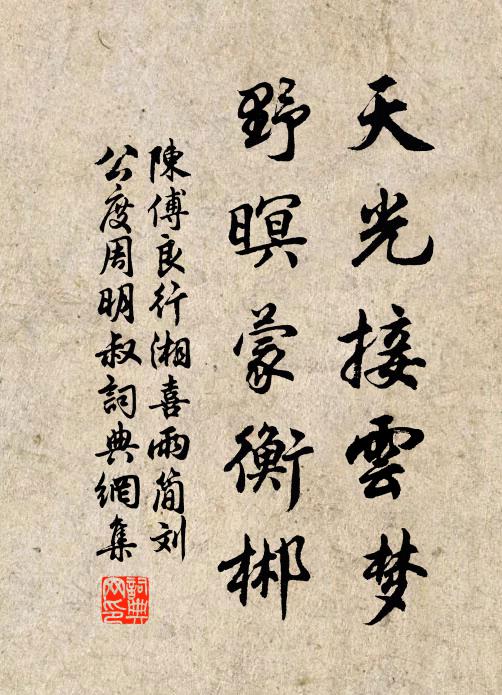 天光接雲梦
野暝蒙衡郴
陳傅良行湘喜雨简刘
公度周明叔詞典網集
詞典网印